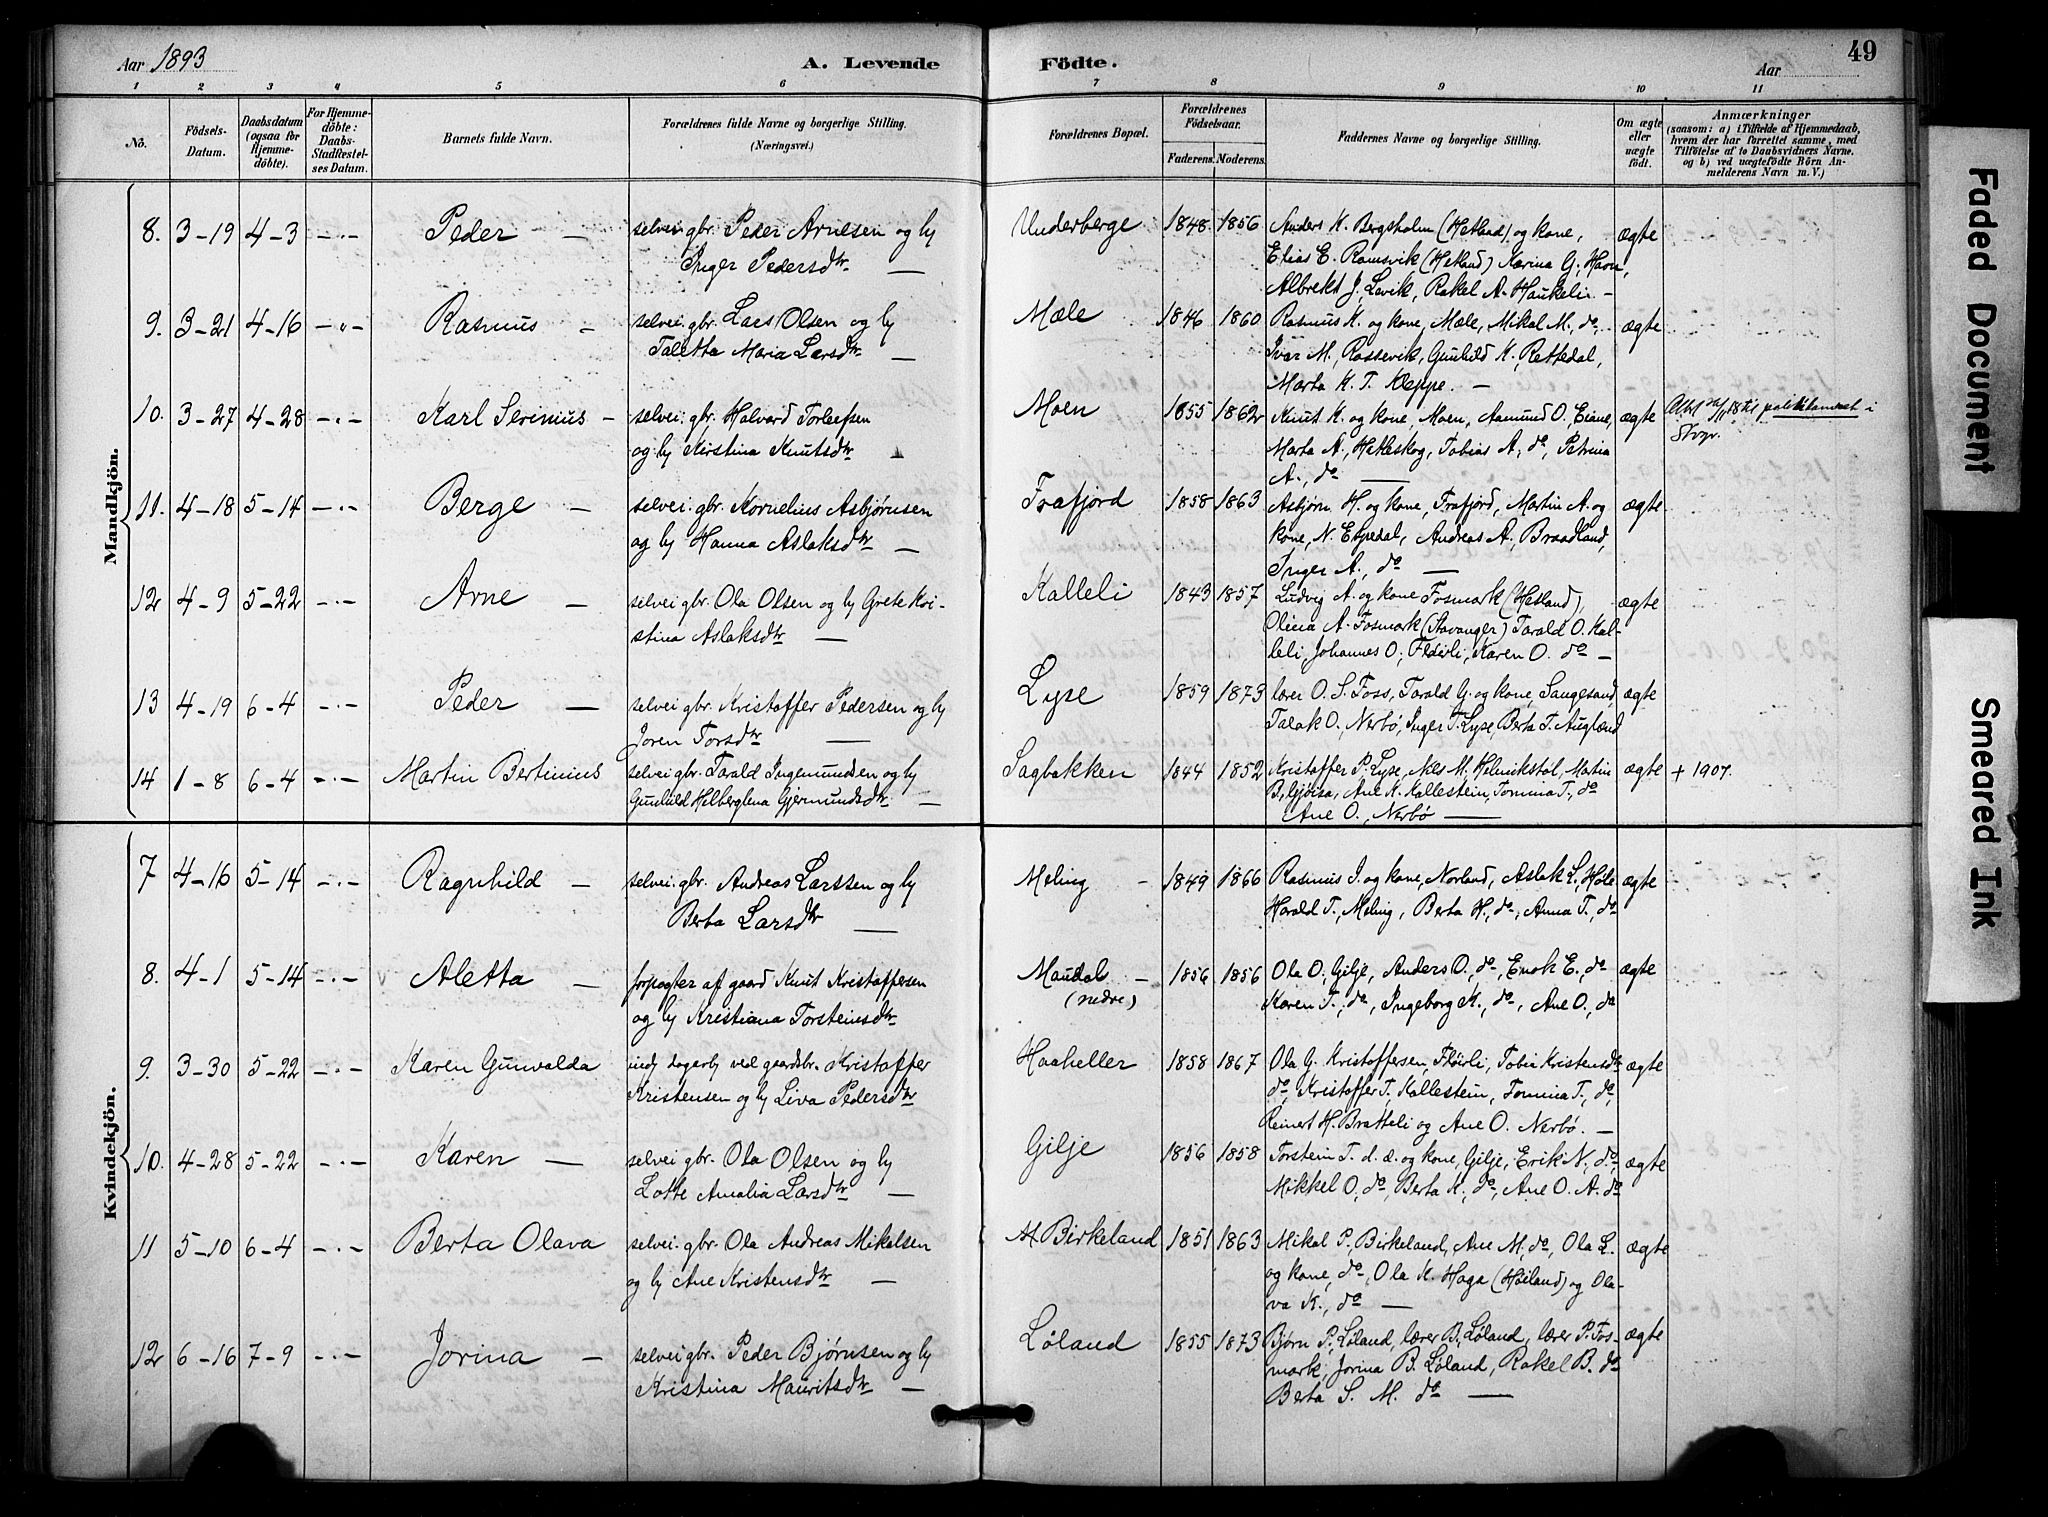 Aar 1893
A. Levende Födte.
Aar
49
1 2 3 4 5 6 7 8 9 10 11
No.
Födsels-
Datum.
Daabsdatum
(ogsaa for
Hjemme-
döbte).
For Hjemme-
döbte:
Daabs-
Stadfæstel-
ses Datum.
Barnets fulde Navn.
Forældrenes fulde Navne og borgerlige Stilling.
(Næringsvei.)
Forældrenes Bopæl.
Forældrenes
Födselsaar.
Faderens. Moderens.
Faddernes Navne og borgerlige Stilling.
Om ægte
eller
uægte
födt.
Anmærkninger
(saasom: a) i Tilfælde af Hjemmedaab,
hvem der har forrettet samme, med
Tilföielse af to Daabsvidners Navne,
og b) ved uægtefödte Börn An-
melderens Navn m. V.)
Mandkjön.
8. 3-19 4-3 -.- Peder - selvei. gbr. Peder Arnesen og hu
Inger Pedersdtr. -
Underberge 1848 1856 Anders K. Bergsholm (Hetland) og kone,
Elias E. Ramsvik (Hetland) Karina G. Havn,
Albrekt J. Levik, Rakel A. Haukelii -
ægte
9. 3-21 4-16 -.- Rasmus - selvei. gbr. Lars Olsen og hu
Taletta Maria Larsdtr -
Mæle 1846 1860 Rasmus K. og kone, Mæle, Mikal M., do,
Ivar M., Rossevik, Gunhild K. Rettedal,
Marta K. T. Kleppe. -
ægte
10. 3-27 4-28 -.- Karl Serinius - selvei. gbr. Halvard Torleifsen
og hu Kirstina Knutsdtr
Moen 1855 1862 Knut K. og kone, Moen, Aamund O. Eiane,
Marta A., Helleskog, Tobias A., do, Petrina
A., do -
ægte til politikamret i
Stvgr.
11. 4-18 5-14 -.- Berge - selvei. gbr. Kornelius Asbjørnsen
og hu Hanna Aslaksdtr -
Frafjord 1858 1863 Asbjørn H. og kone, Frafjord, Martin A. og
kone, N. Espedal, Andreas A., Braadland,
Inger A., do -
ægte
12 4-9 5-22 -.- Arne - selvei gbr. Ola Olsen og hu Grete Kri-
stina Aslaksdtr -
Kalleli 1843 1857 Ludvig A. og kone Fosmark (Hetland),
Olina A. Fosmark (Stavanger) Tarald O. Kal-
leli, Johannes O., Fløirli, Karen O. do -
ægte
13 4-19 6-4 -.- Peder - selvei gbr. Kristoffer Pedersen og hu
Joren Torsdtr -
Lyse 1859 1873 lærer O. S. Foss, Tarald G. og kone, Sangesand,
Talak O. Nerbø, Inger T. Lyse, Berta T. Auglænd
ægte
14 1-8 6-4 -.- Martin Bertinius selvei gbr. Tarald Ingemundsen og hu
Gunhild Helberglena Gjermundsdtr -
Sagbakken 1844 1852 Kristoffer P. Lyse, Nils M. Helmikstøl, Martin
B. Gjøisa, Ane K. Kallestein, Tomina T., do
Ane O., Nerbø -
ægte + 1907.
Kvindekjön.
7 4-16 5-14 -.- Ragnhild - selvei. gbr. Andreas Larssen og hu
Berta Larsdtr -
Meling - 1849 1866 Rasmus J. og kone, Norland, Aslak L., Høle
Harald T., Meling, Berta H., do, Anna T., do
ægte
8. 4-1 5-14 -.- Aletta - forpagter af gaard Knut Kristoffersen
og hu Kristiana Torsteinsdtr.
Maudal -
(nedre)
1856 1856 Ola O., Gilje, Anders O., do, Enok E., do
Karen T., do, Ingeborg K., do, Ane O., do
ægte
9. 3-30 5-22 -.- Karen Gunvalda indf. dagarb ved gaardsbr. Kristoffer
Kristensen og hu Liva Pedersdtr
Haaheller 1858 1867 Ola G. Kristoffersen, Fløirli, Tobia Kristensdtr
do, Kristoffer T., Kallestein, Tomina T., do,
Reinert H. Bratteli og Ane O. Nerbø. -
ægte
10. 4-28 5-22 -.- Karen - selvei gbr. Ola Olsen og hu
Lotte Amalia Larsdtr -
Gilje 1856 1858 Torstein T. d. æ. og kone, Gilje, Erik N., do,
Mikkel O., do, Berta K., do, Ane O. A. do
ægte
11 5-10 6-4 -.- Berta Olava selvei gbr. Ola Andreas Mikalsen
og hu Ane Kristensdtr -
M. Birkeland 1851 1863 Mikal P., Birkeland, Ane M., do, Ola L.
og kone, do, Ola K. Haga (Høiland) og Ola-
va K., do -
ægte
12 6-16 7-9 -.- Jorina - selvei gbr. Peder Bjørnsen og hu
Kristina Mauritsdtr -
Løland 1855 1873 Bjørn P., Løland, lærer B. Løland, lærer P. Fos-
mark, Jorina B. Løland, Rakel B. do
Berta S. M. do -
ægte
Faded Document
Smeared Ink